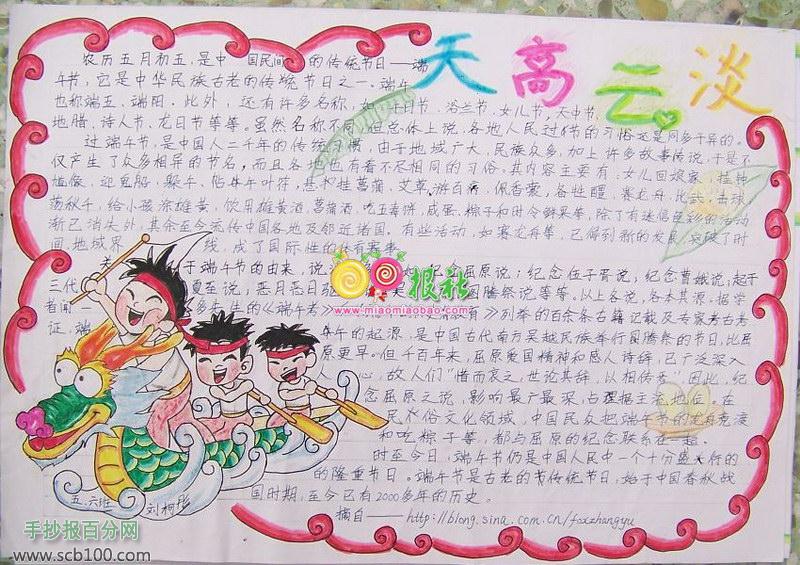 天高云淡
农历五月初五,是中 国民间 的传统节日——端
午节,它是中华民族古老的传统节日之一。端午
也称端五,端阳。此外,还有许多名称,如: 午日节、浴兰节,女儿节,天中节、
地腊、诗人节、龙日节等等。虽然名称不同,但总体上说,各地人民过节的习俗还是同多于异的。
过端午节,是中国人二千年的传统习惯,由于地域广大,民族众多,加上许多故事传说,于是不
仅产生了众多相异的节名,而且各地也有着不尽相同的习俗,其内容主要有:女儿回娘家,挂钟
馗像,迎鬼船、躲午、帖午叶符,悬 挂菖蒲、艾草,游百病,佩香囊,备牲醴,赛龙舟,比武,击球,
荡秋千,给小孩涂雄黄,饮用雄黄酒、菖蒲酒,吃五毒饼、咸蛋、粽子和时令鲜果等,除了有迷信色彩的活动
渐已消失外,其余至今流传中国各地及邻近诸国。有些活动,如赛龙舟等,已得到新的发展,突破了时
间,地域界 线,成了国际性的体育赛事。
关 于端午节的由来,说 纪念屈原说;纪念伍子胥说,纪念曹娥说;起于
三代 夏至说,恶月恶日驱 图腾祭说等等。以上各说,各本其源。据学
者闻一 多先生的《端午考》 》列举的百余条古籍记载及专家考古考
证,端 午的起源,是中国古代南方吴越民族举行图腾祭的节日,比屈
原更早。但千百年来,屈原爱国精神和感人诗辞,已广泛深入
人心,故人们“惜而哀之,世论其辞,以相传焉”因此,纪
念屈原之说,影响最广最深,占据主流地位。在
民俗文化领域,中国民众把端午节的龙舟竞渡
和吃粽子等,都与屈原的纪念联系在一起。
时至今日,端午节仍是中国人民中一个十分盛行的
的隆重节日。端午节是古老的传统节日,始于中国春秋战
国时期,至今已有2000多年的历史。
摘自——http://blong.sina.com.cn/foxzhangyu
报社
www.miaomiaobao.com
五.六班 刘柯彤
手抄报百分网
www.scb100.com